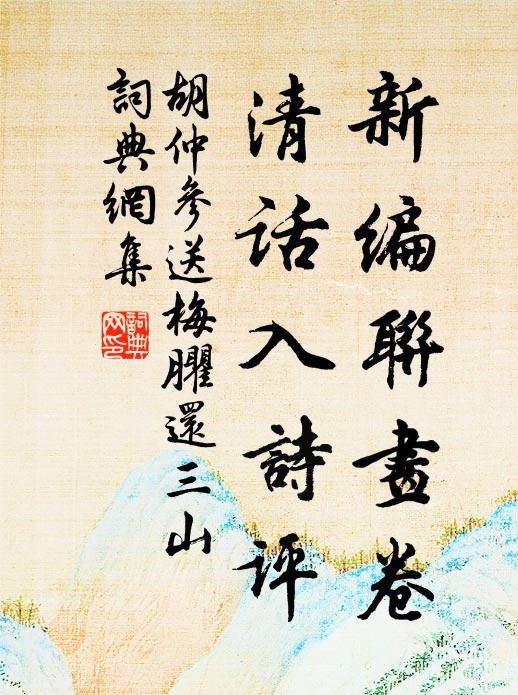 新編聯畫卷
清话入詩評
胡仲參送梅臞還三山
詞典網集
詞典網印